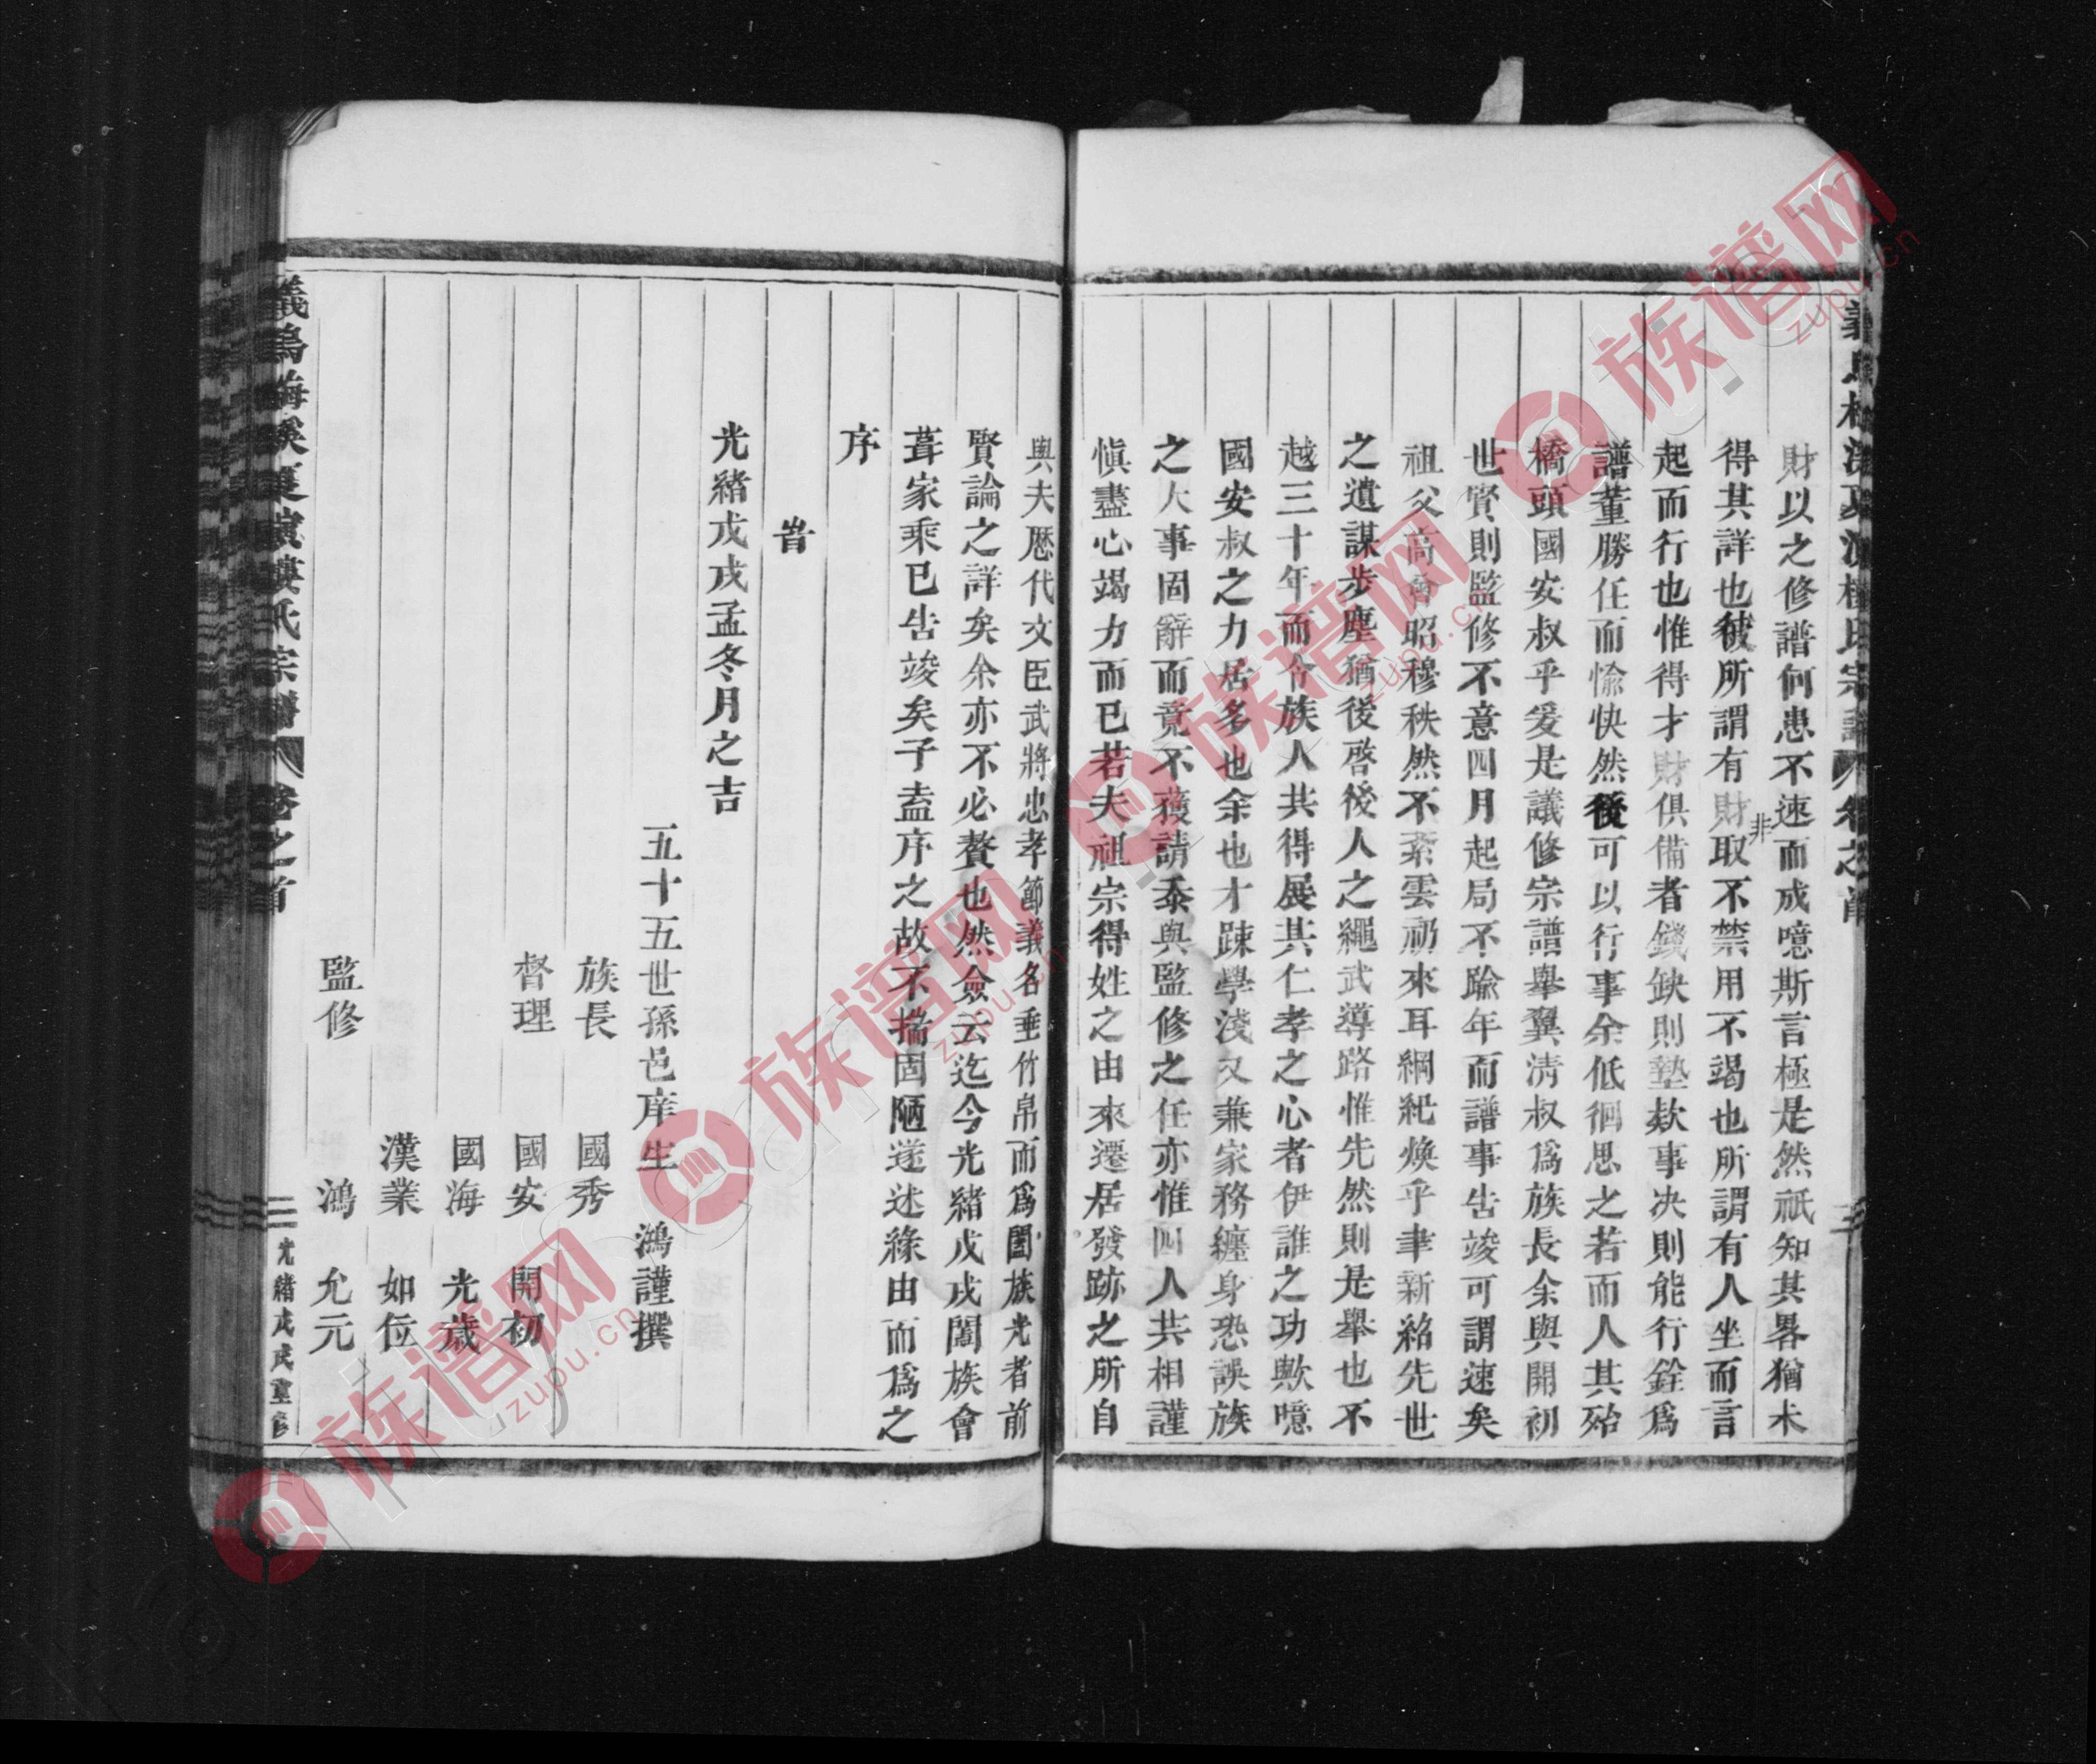 財以之修譜何患不速而成噫斯言極是然祇知其畧猶未
得其詳也彼所謂有財非取不禁用不竭也所謂有人坐而言
起而行也惟得才財俱備者錢缺則墊欵事決則能行銓爲
譜董勝任而愉快然後可以行事余低徊思之若而人其殆
橋頭國安叔乎爰是議修宗譜舉翼淸叔爲族長余與開初
世賢則監修不意四月起局不踰年而譜事告竣可謂速矣
祖父高曾昭穆秩然不紊雲礽來耳綱紀煥乎聿新紹先世
之遺謀步塵猶後啓後人之繩武導路惟先然則是舉也不
越三十年而令族人共得展共仁孝之心者伊誰之功歟噫
國安叔之力居多也余也才踈學淺又兼家務纏身恐誤族
之大事固辭而竟不獲請忝與監修之任亦惟四人共相謹
愼盡心竭力而已若夫祖宗得姓之由來遷居發跡之所自
與夫歴代文臣武將忠孝節義名垂竹帛而爲闔族光者前
賢論之詳矣余亦不必贅也然僉云迄今光緒戊戌闔族會
葺家乘已告竣矣子盍序之故不揣固陋遂述緣由而爲之
序
旹
光緒戊戌孟冬月之吉
五十五世孫邑庠生 鴻謹撰
族長 國秀
督理 國安 開初
國海 光歳
漢業 如位
監修 鴻 允元
樓氏宗譜 卷之首 二 光緒戊戌重修
族谱网 zupu.cn
族谱网 zupu.cn
族谱网 zupu.cn
族谱网 zupu.cn